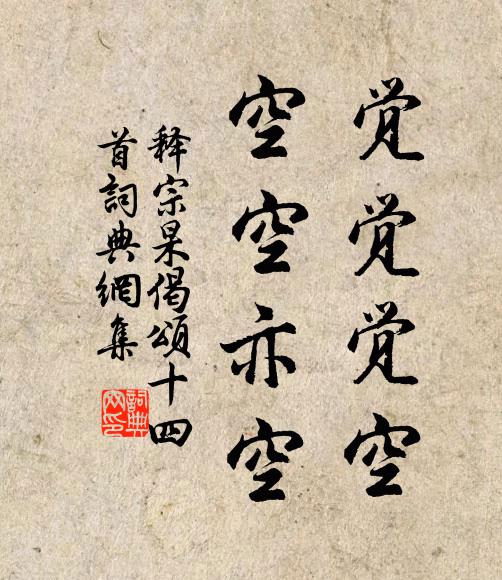 觉觉觉空
空空亦空
释宗杲偈頌十四
首詞典網集
詞典網印